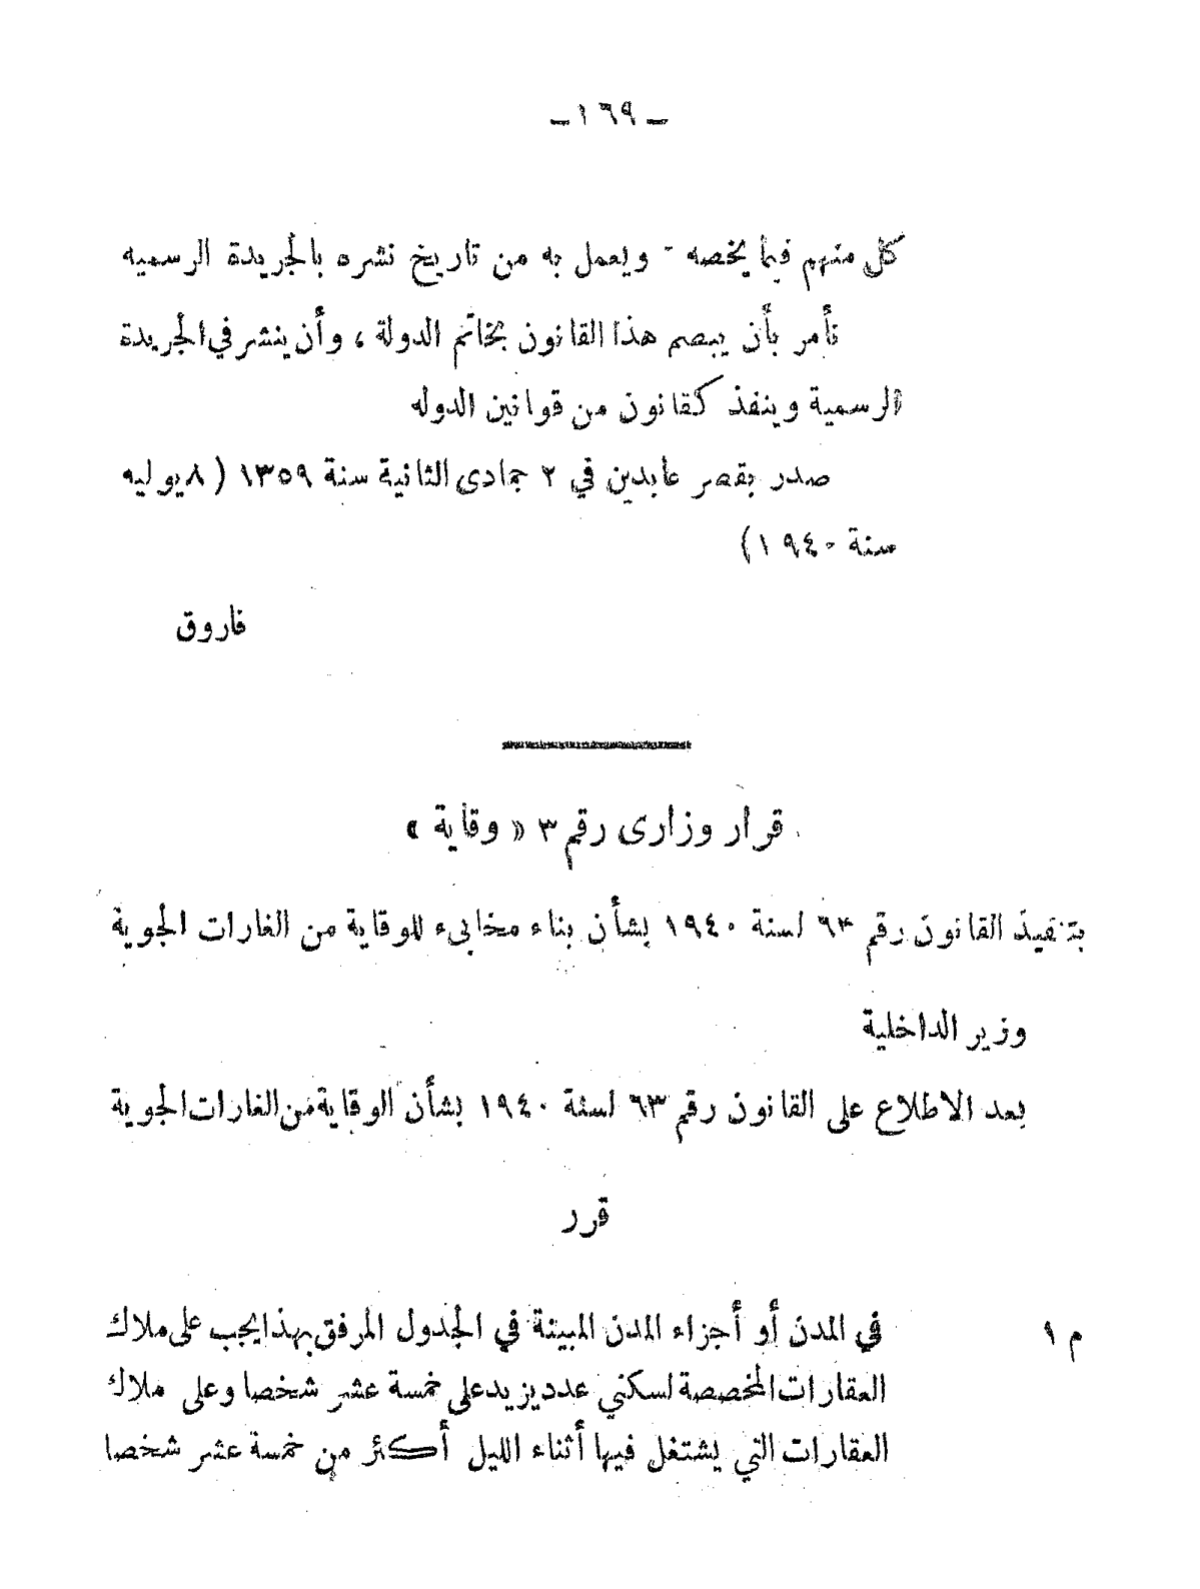 ـ ١٦٩ ـ
كل منهم فيما يخصه - ويعمل به من تاريخ نشره بالجريدة الرسميه
نأمر بأن يبصم هذا القانون بخاتم الدولة ، وأن ينشر في الجريدة
الرسمية وينفذ كقانون من قوانين الدوله
صدر بقصر عابدين في ٢ جمادى الثانية سنة ١٣٥٩ ( ٨ يوليه
سنة ١٩٤٠)
فاروق
قرار وزارى رقم ٣ « وقاية »
بتنفيذ القانون رقم ٦٣ لسنة ١٩٤٠ بشأن بناء مخابىء للوقاية من الغارات الجوية
وزير الداخلية
بعد الاطلاع على القانون رقم ٦٣ لسنة ١٩٤٠ بشأن الوقاية من الغارات الجوية
قرر
م ١ في المدن أو أجزاء المدن المبينة في الجدول المرفق بهذا يجب على ملاك
العقارات المخصصة لسكني عدد يزيد على خمسة عشر شخصا وعلى ملاك
العقارات التي يشتغل فيها أثناء الليل أكثر من خمسة عشر شخصا